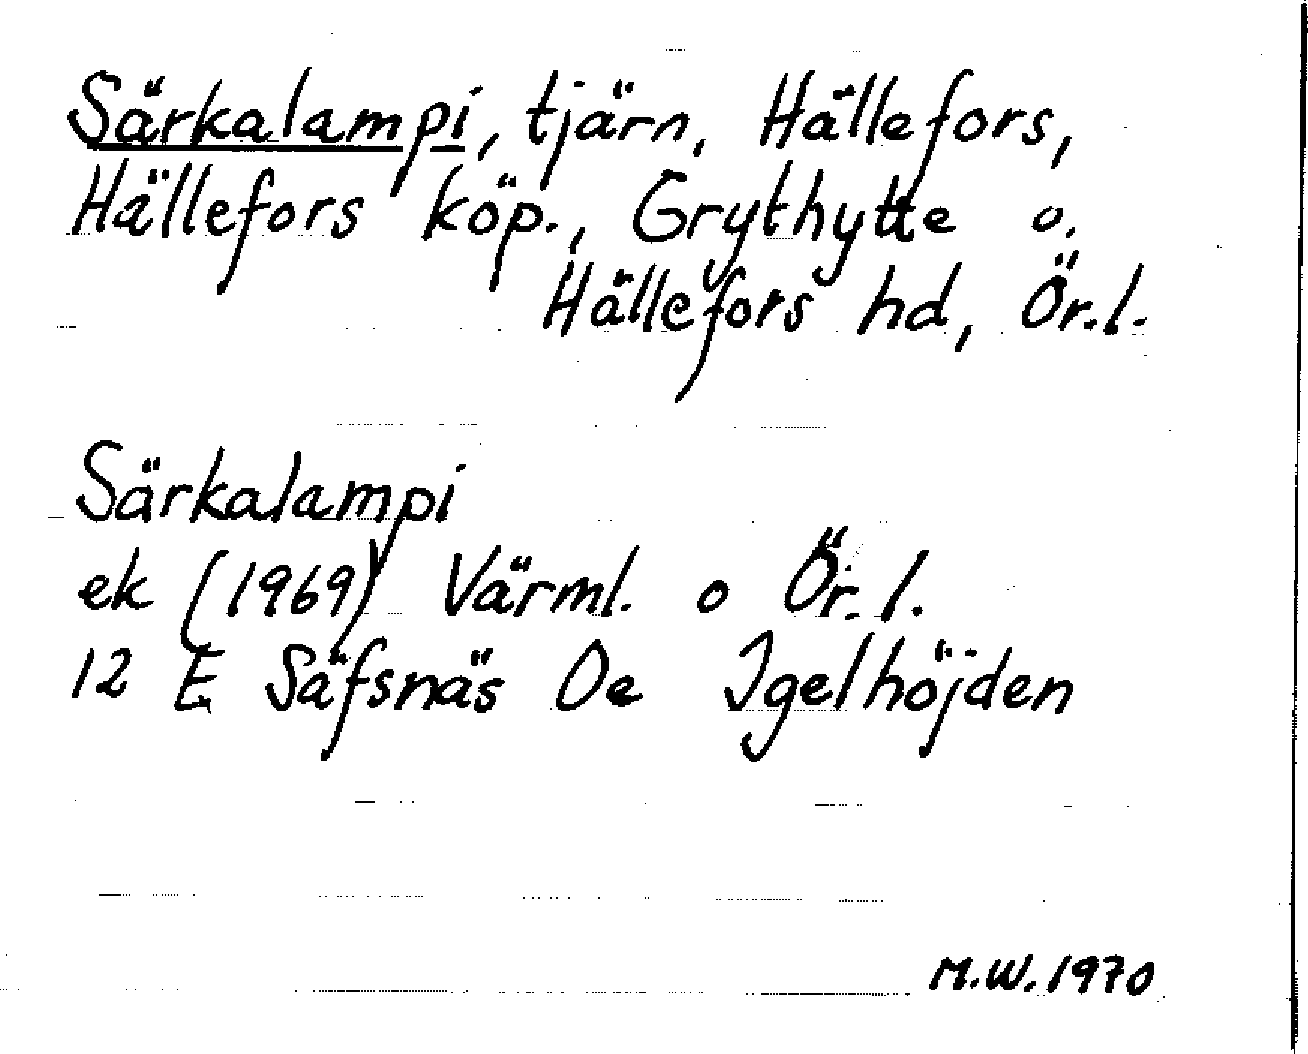 Särkalampi, tjärn, Hällefors,
Hällefors köp., Grythytte o.
Hällefors hd, Ör.l.
Särkalampi
ek (1969) Värml. o Ör.l.
12 E Säfsnäs 0e Igelhöjden
M.W.1970